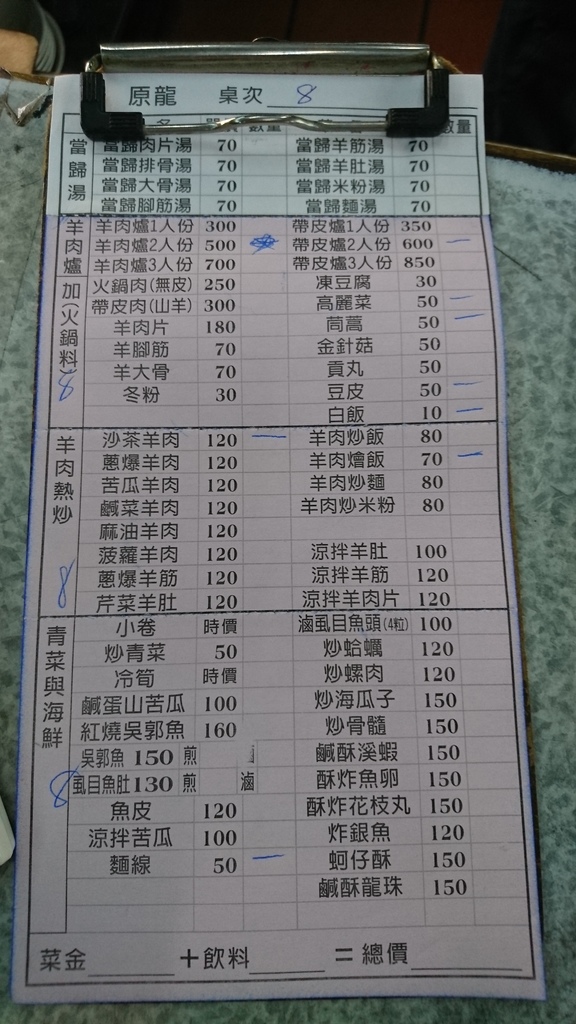 原龍 桌次 8
名 數量 數量
當歸湯
當歸肉片湯 70 當歸羊筋湯 70
當歸排骨湯 70 當歸羊肚湯 70
當歸大骨湯 70 當歸米粉湯 70
當歸腳筋湯 70 當歸麵湯 70
羊肉爐加(火鍋料) 8
羊肉爐1人份 300 帶皮爐1人份 350
羊肉爐2人份 500 帶皮爐2人份 600 一
羊肉爐3人份 700 帶皮爐3人份 850
火鍋肉(無皮) 250 凍豆腐 30
帶皮肉(山羊) 300 高麗菜 50 一
羊肉片 180 茼蒿 50 一
羊腳筋 70 金針菇 50
羊大骨 70 貢丸 50
冬粉 30 豆皮 50 一
白飯 10 一
羊肉熱炒 8
沙茶羊肉 120 一 羊肉炒飯 80
蔥爆羊肉 120 羊肉燴飯 70 一
苦瓜羊肉 120 羊肉炒麵 80
鹹菜羊肉 120 羊肉炒米粉 80
麻油羊肉 120
菠蘿羊肉 120 涼拌羊肚 100
蔥爆羊筋 120 涼拌羊筋 120
芹菜羊肚 120 涼拌羊肉片 120
青菜與海鮮 8
小卷 時價 滷虱目魚頭(4粒) 100
炒青菜 50 炒蛤蠣 120
冷筍 時價 炒螺肉 120
鹹蛋山苦瓜 100 炒海瓜子 150
紅燒吳郭魚 160 炒骨髓 150
吳郭魚 150 煎 鹹酥溪蝦 150
虱目魚肚 130 煎 滷 酥炸魚卵 150
魚皮 120 酥炸花枝丸 150
涼拌苦瓜 100 炸銀魚 120
麵線 50 一 蚵仔酥 150
鹹酥龍珠 150
菜金______+飲料______=總價______